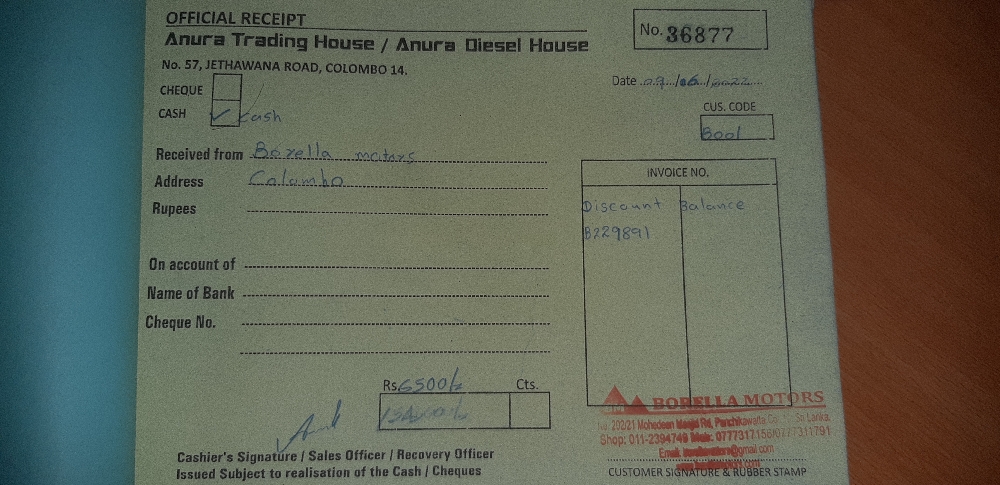 OFFICIAL RECEIPT
Anura Trading House / Anura Diesel House
No. 36877
No. 57, JETHAWANA ROAD, COLOMBO 14.
Date 09/06/2022
CHEQUE
CASH ✓ Cash
CUS. CODE
Boo1
Received from Borella motors
Address Colombo
Rupees
INVOICE NO.
Discount Balance
B229891
On account of
Name of Bank
Cheque No.
Rs. 6500/= Cts.
BORELLA MOTORS
No. 202/21 Mohedeen Masjid Rd, Panchikawatta Sri Lanka.
Shop: 011-2394749 0777317156/0777311791
Cashier's Signature / Sales Officer / Recovery Officer
Issued Subject to realisation of the Cash / Cheques
CUSTOMER SIGNATURE & RUBBER STAMP